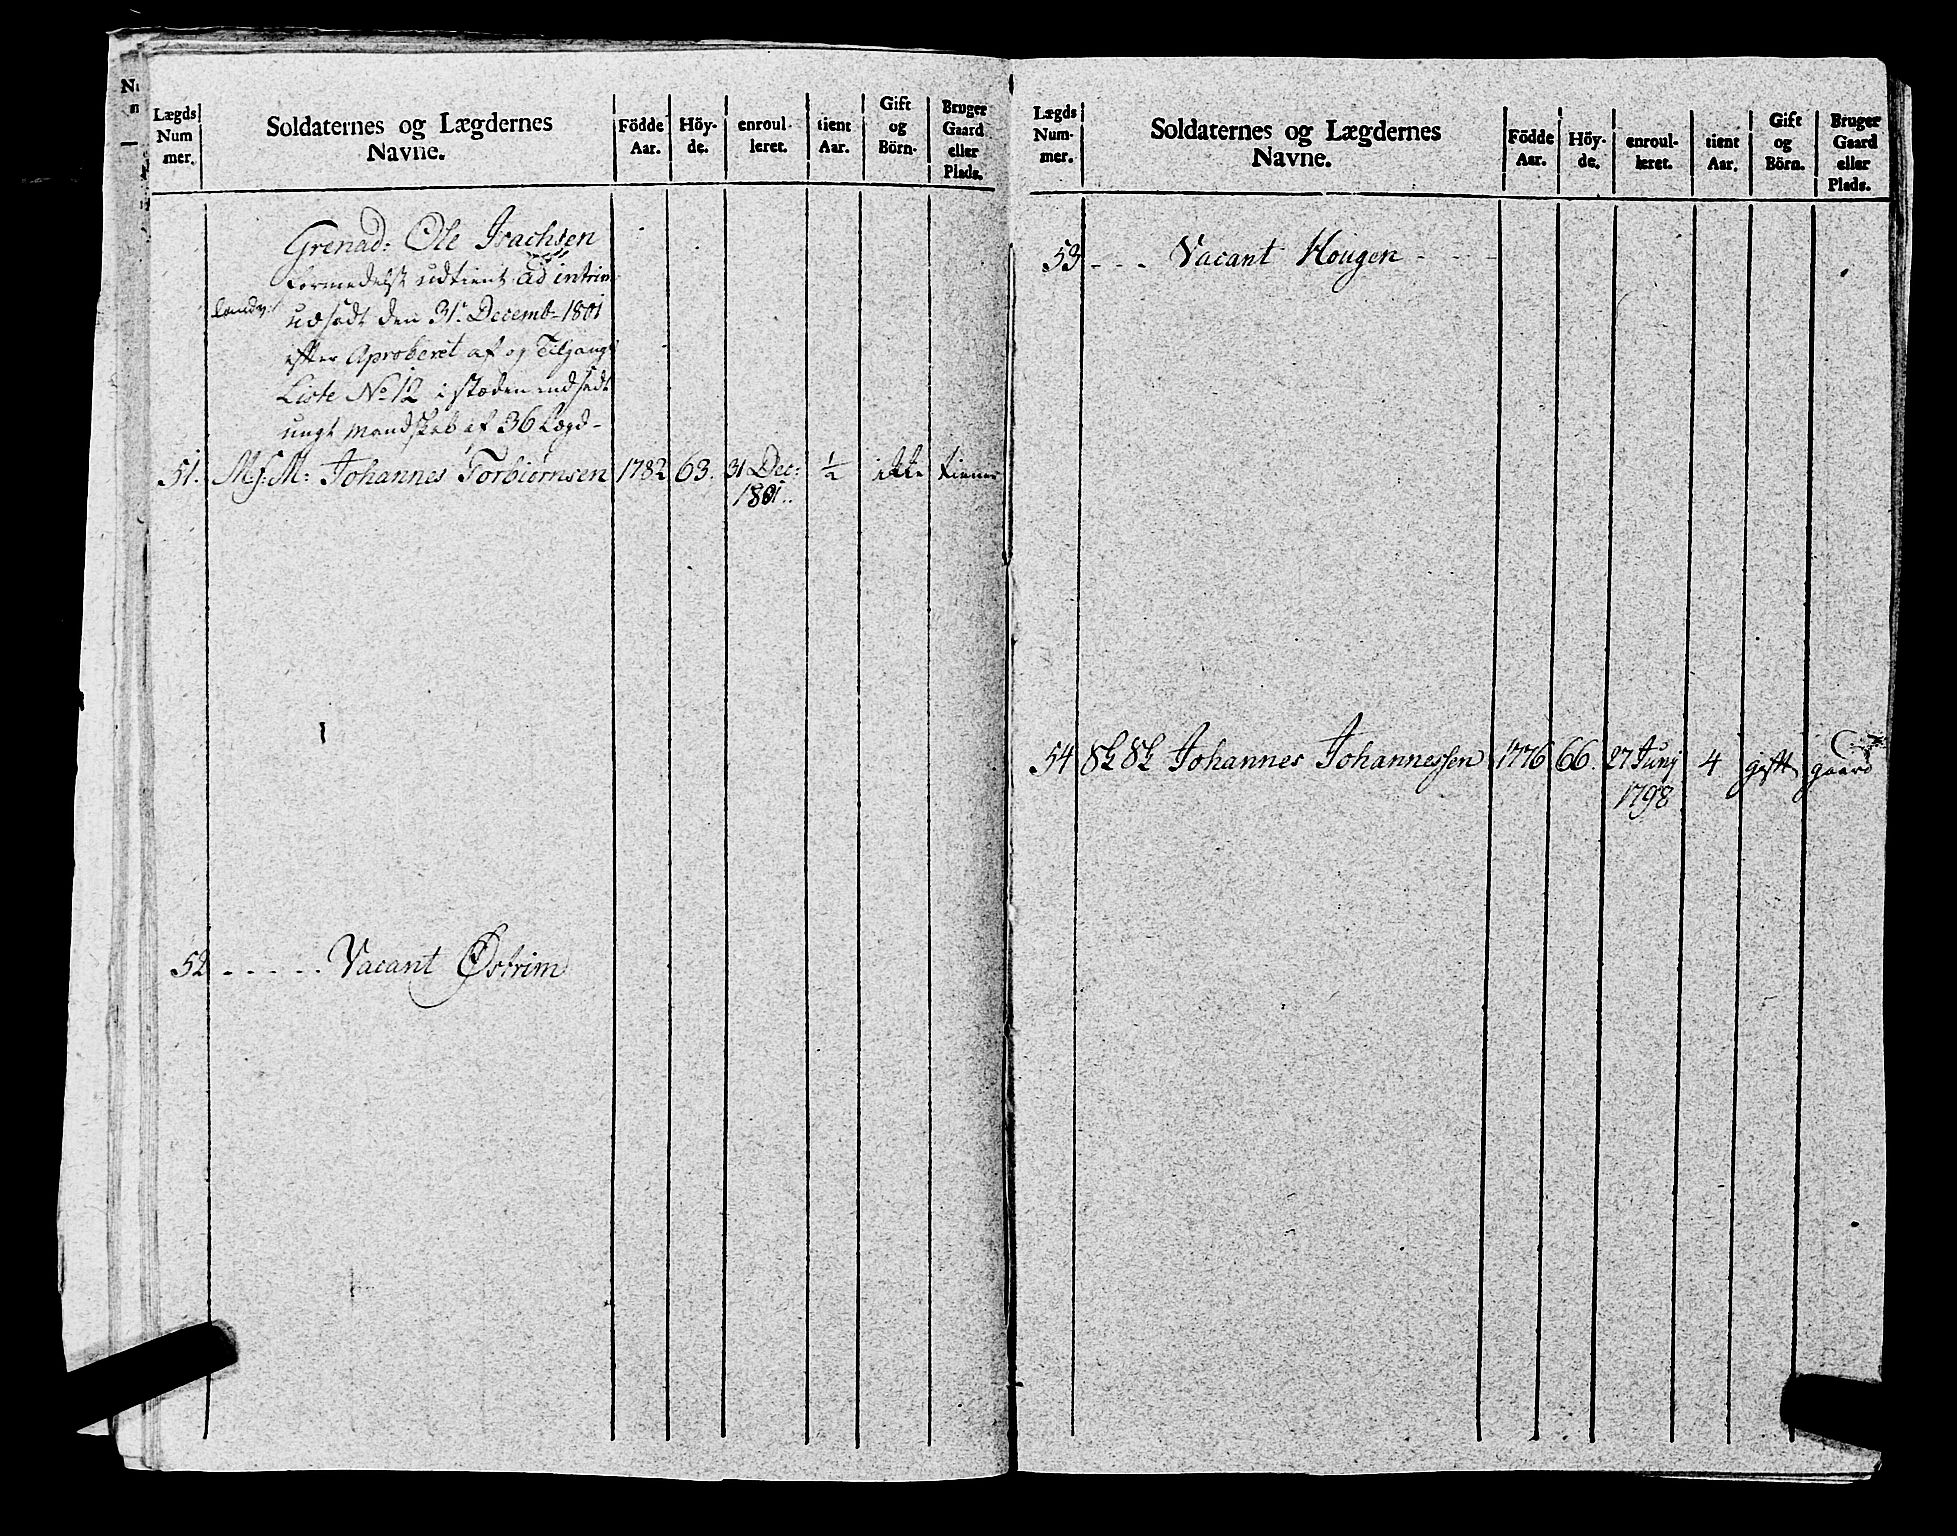 Lægds Num mer.
Soldaternes og Lægdernes Navne.
Födde Aar.
Höy- de.
enroul- leret.
tient Aar.
Gift og Börn.
Bruger Gaard eller Plads.
Grenad: Ole Isachsen
formedelst udtient ad intrim
landv:
udsadt den 31. Decemb- 1801
efter Aproberet af og Tilgangs
Liste No 12 i stæden indsadt
ungt Mandskab af 36 Lægd-
51. M: Johannes Torbiørnsen 1782 63. 31 Dec: 1801.. ½ ikke tiener
52 - - - - - Vacant Østrim
Lægds Num- mer.
Soldaternes og Lægdernes Navne.
Födde Aar.
Höy- de.
enroul- leret.
tient Aar.
Gift og Börn.
Bruger Gaard eller Plads.
53 - - - Vacant Hougen - - - -
54 Johannes Johannessen 1776 66. 27 Junj 1798 4 gift gaard